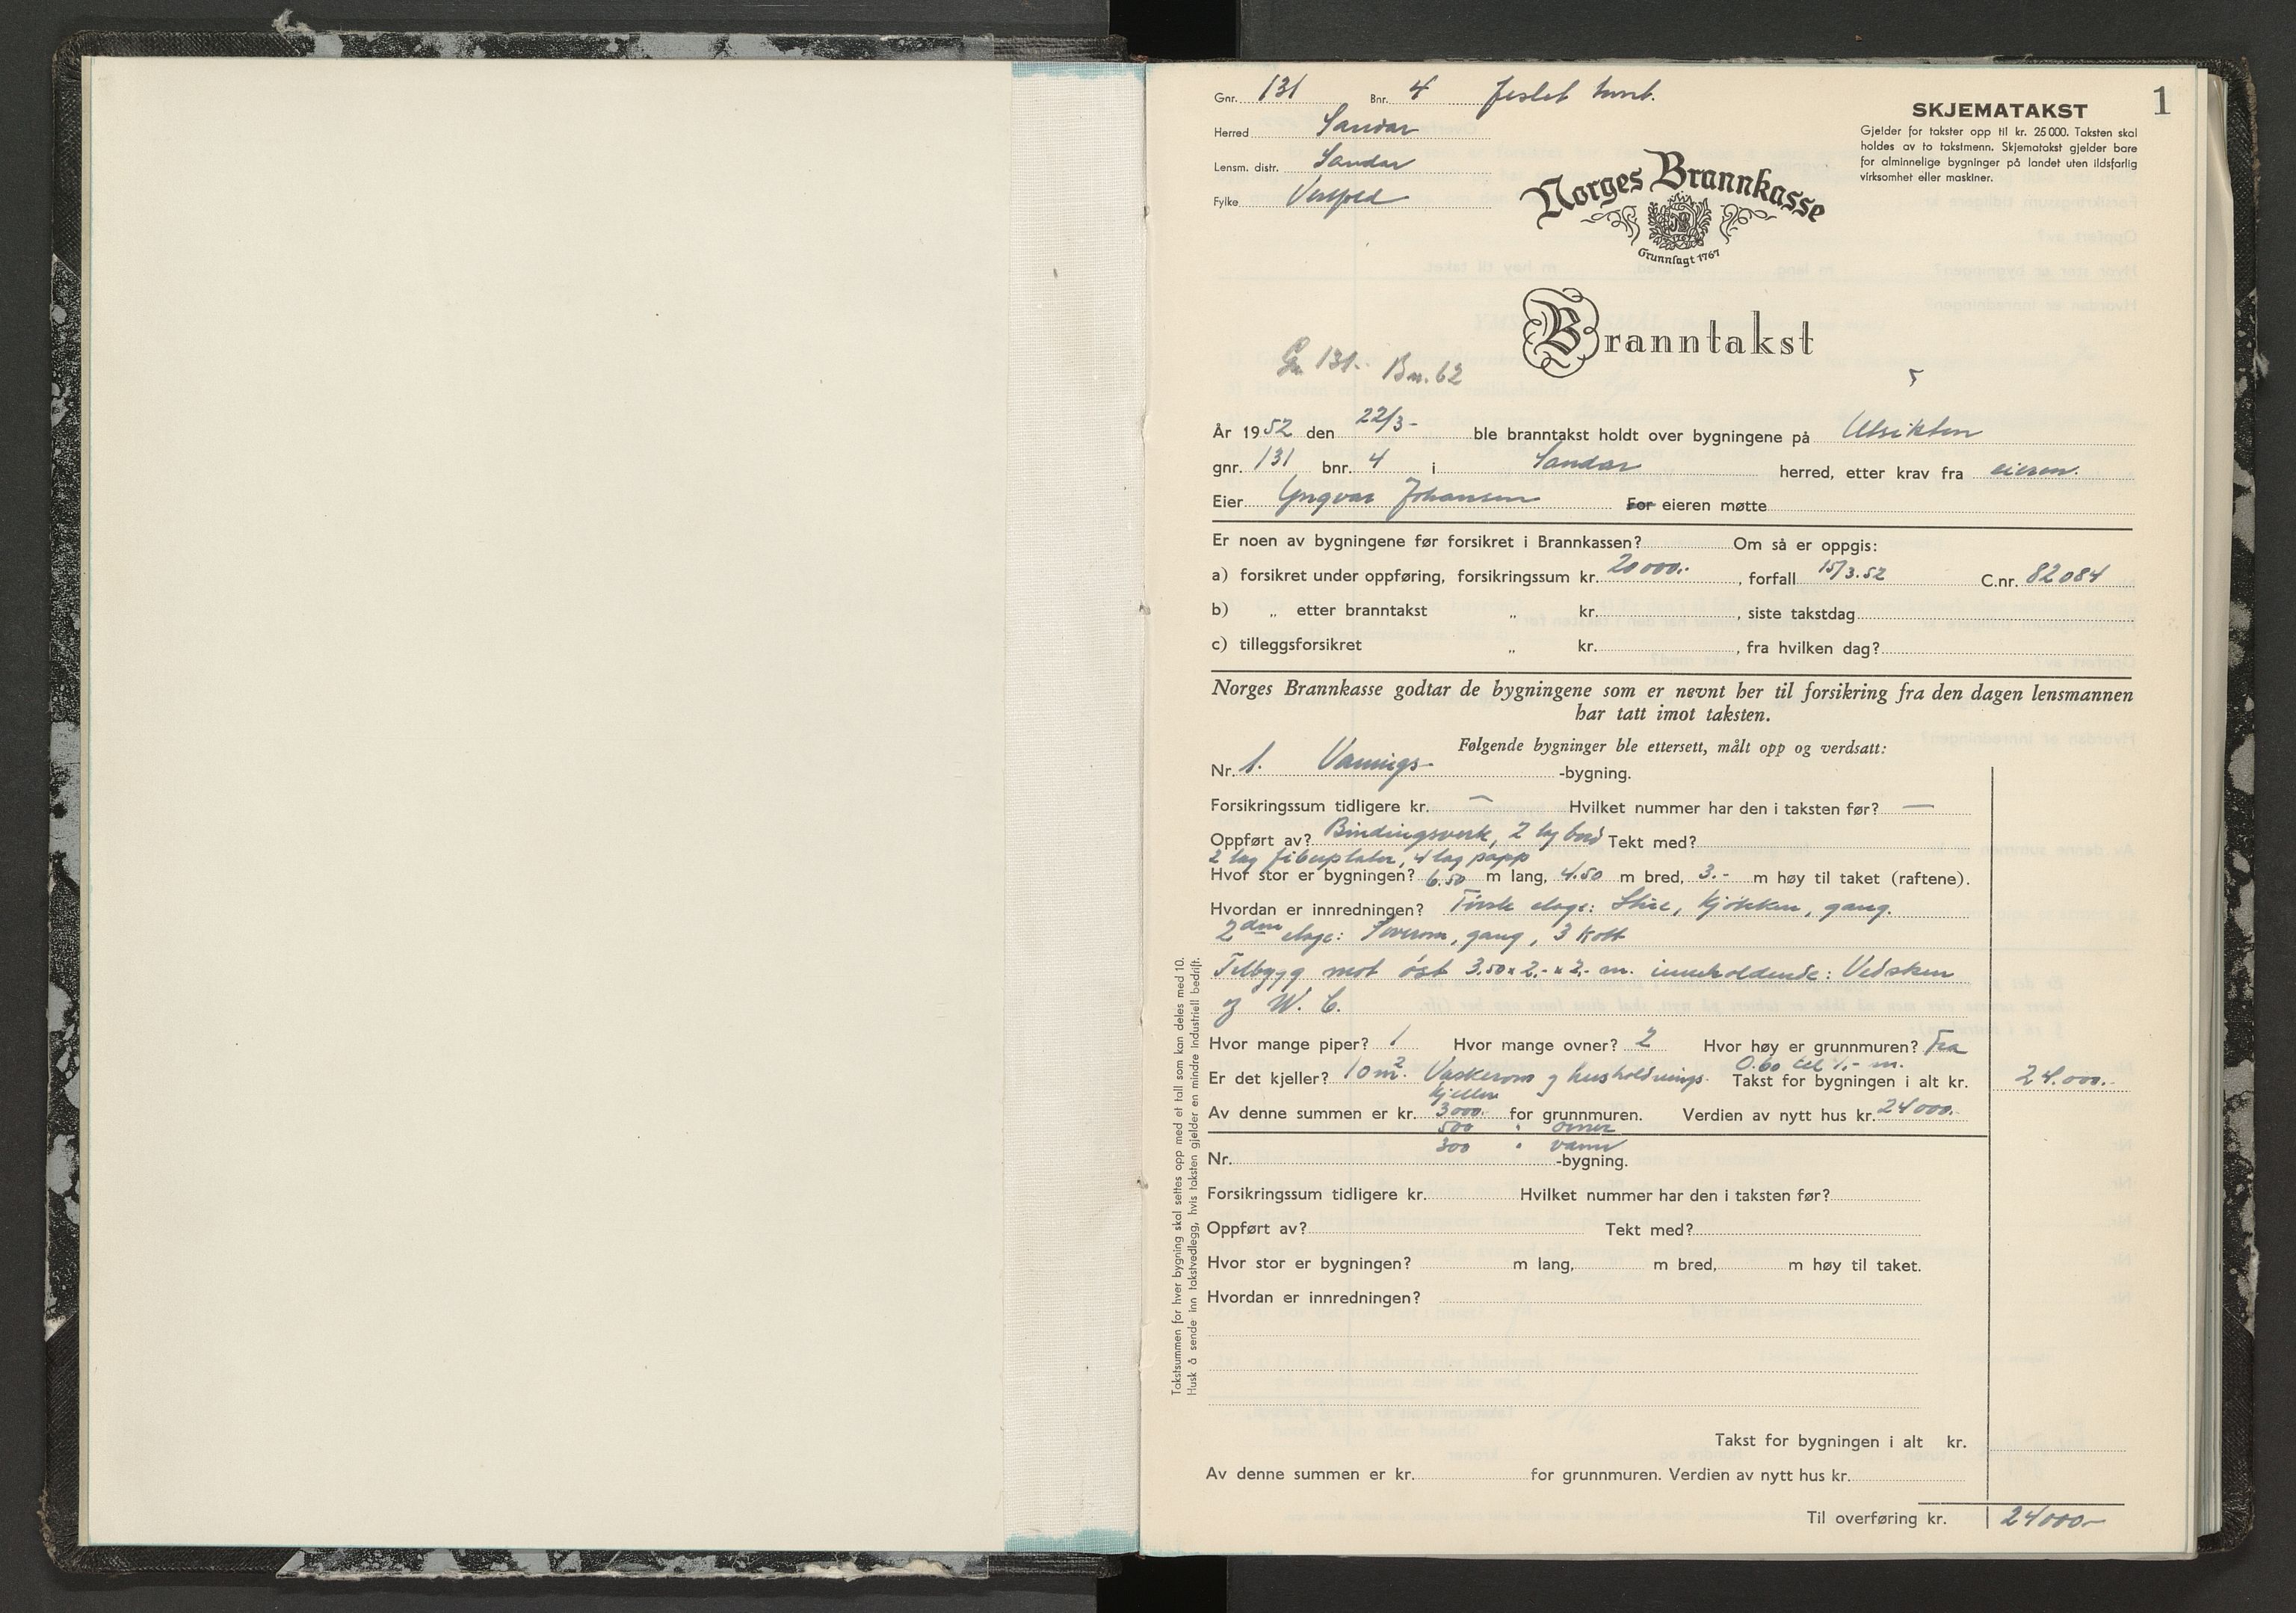 Gnr. 131 Bnr. 4
Herred Sandar
Lensm. distr. Sandar
Fylke Vestfold
SKJEMATAKST
1
Gjelder for takster opp til kr. 25 000. Taksten skal
holdes av to takstmenn. Skjematakst gjelder bare
for alminnelige bygninger på landet uten ildsfarlig
virksomhet eller maskiner.
Norges Brannkasse
Grunnlagt 1767
Branntakst
Gn 131. Bn. 62
År 1952 den 22/3- ble branntakst holdt over bygningene på Utsikten
gnr. 131 bnr. 4 i Sandar herred, etter krav fra eieren.
Eier Yngvar Johansen For eieren møtte
Er noen av bygningene før forsikret i Brannkassen? Om så er oppgis:
a) forsikret under oppføring, forsikringssum kr. 20 000.- , forfall 15/3.52 C.nr. 82084
b) „ etter branntakst „ kr. , siste takstdag
c) tilleggsforsikret „ kr. , fra hvilken dag?
Norges Brannkasse godtar de bygningene som er nevnt her til forsikring fra den dagen lensmannen
har tatt imot taksten.
Følgende bygninger ble ettersett, målt opp og verdsatt:
Nr. 1. Vånings- -bygning.
Forsikringssum tidligere kr. — Hvilket nummer har den i taksten før? —
Oppført av? Bindingsverk, 2 lag bord Tekt med?
2 lag fiberplater, 4 lag papp
Hvor stor er bygningen? 6.50 m lang, 4.50 m bred, 3.- m høy til taket (raftene).
Hvordan er innredningen? Første etage: Stue, kjøkken, gang.
2den etage: Soverom, gang, 3 kott
Tilbygg mot øst 3.50 x 2.- x 2.- m. inneholdende: Vedskur
og W. C.
Hvor mange piper? 1 Hvor mange ovner? 2 Hvor høy er grunnmuren? Fra
0.60 til 1.- m.
Er det kjeller? 10 m². Vaskerom og husholdnings- Takst for bygningen i alt kr. 24.000.-
kjeller
Av denne summen er kr. 3000.- for grunnmuren. Verdien av nytt hus kr. 24000.-
500 " ovner
300 " vann
Nr. -bygning.
Forsikringssum tidligere kr. Hvilket nummer har den i taksten før?
Oppført av? Tekt med?
Hvor stor er bygningen? m lang, m bred, m høy til taket.
Hvordan er innredningen?
Takst for bygningen i alt kr.
Av denne summen er kr. for grunnmuren. Verdien av nytt hus kr.
Til overføring kr. 24000-
Takstsummen for hver bygning skal settes opp med et tall som kan deles med 10.
Husk å sende inn takstvedlegg, hvis taksten gjelder en mindre industriell bedrift.